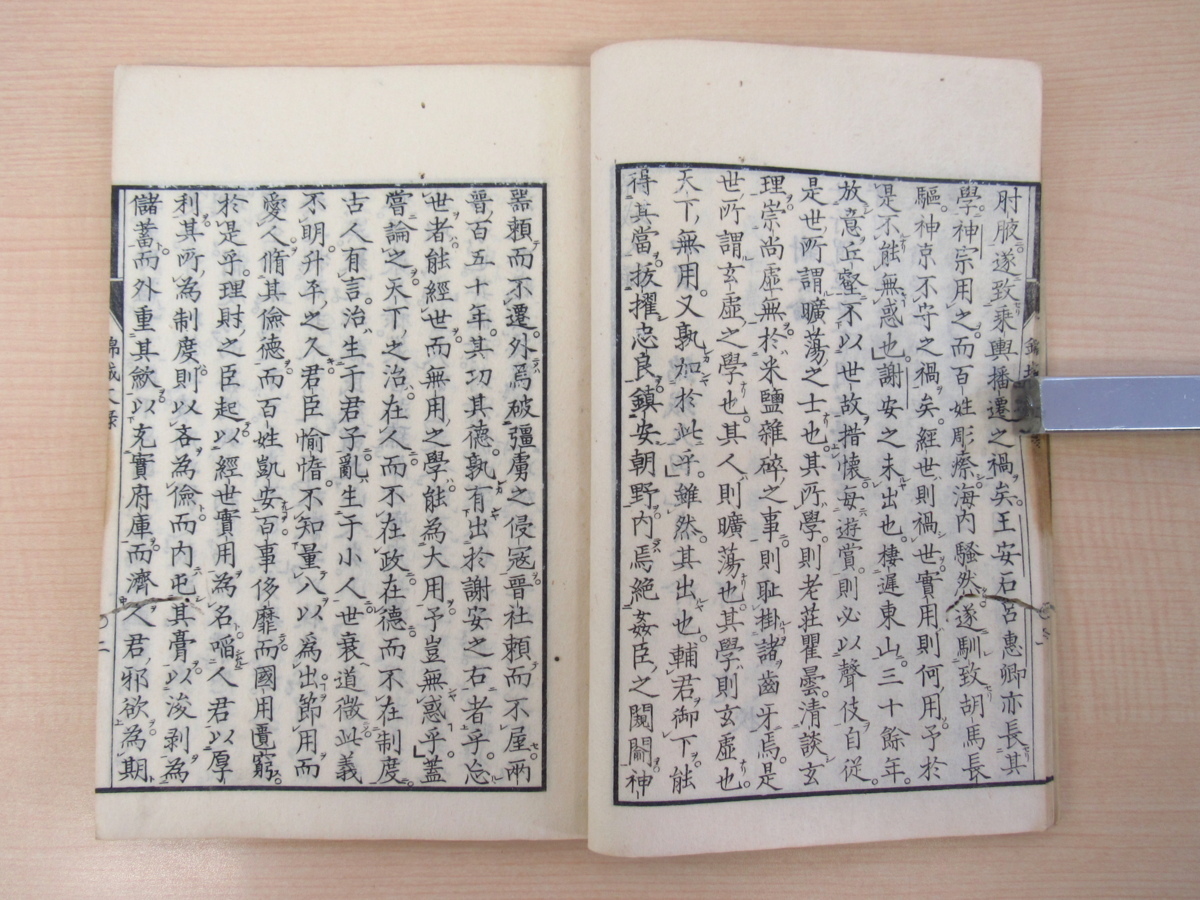 肘腋遂致乘輿播遷之禍矣王安石呂惠卿亦長其
學神宗用之而百姓彫瘵海内騷然遂馴致胡馬長
驅神京不守之禍矣經世則禍世實用則何用予於
是不能無惑也謝安之未出也棲遲東山三十餘年
放意丘壑不以世故措懷每遊賞則必以聲伎自從
是世所謂曠蕩之士也其所學則老莊瞿曇清談玄
理崇尚虛無於米鹽雜碎之事則耻掛諸齒牙焉是
世所謂玄虛之學也其人則曠蕩也其學則玄虛也
天下無用又孰加於此乎雖然其出也輔君御下能
得其當拔擢忠良鎮安朝野内焉絶姦臣之闚𨵦神
器賴而不遷外焉破彊虜之侵寇晋社賴而不屋兩
晉百五十年其功其德孰有出於謝安之右者乎
世者能經世而無用之學能為大用予豈無惑乎蓋
嘗論之天下之治在人而不在政在德而不在制度
古人有言治生于君子亂生于小人世衰道微此義
不明升平之久君臣愉惰不知量入以為出節用而
愛人脩其儉德而百姓凱安百事侈靡而國用匱窮
於是乎理財之臣起以經世實用為名啗人君以厚
利其所為制度則以吝為儉而内屯其膏以浚剥為
儲蓄而外重其歛以充實府庫而濟人君邪欲為期
錦城文録
二